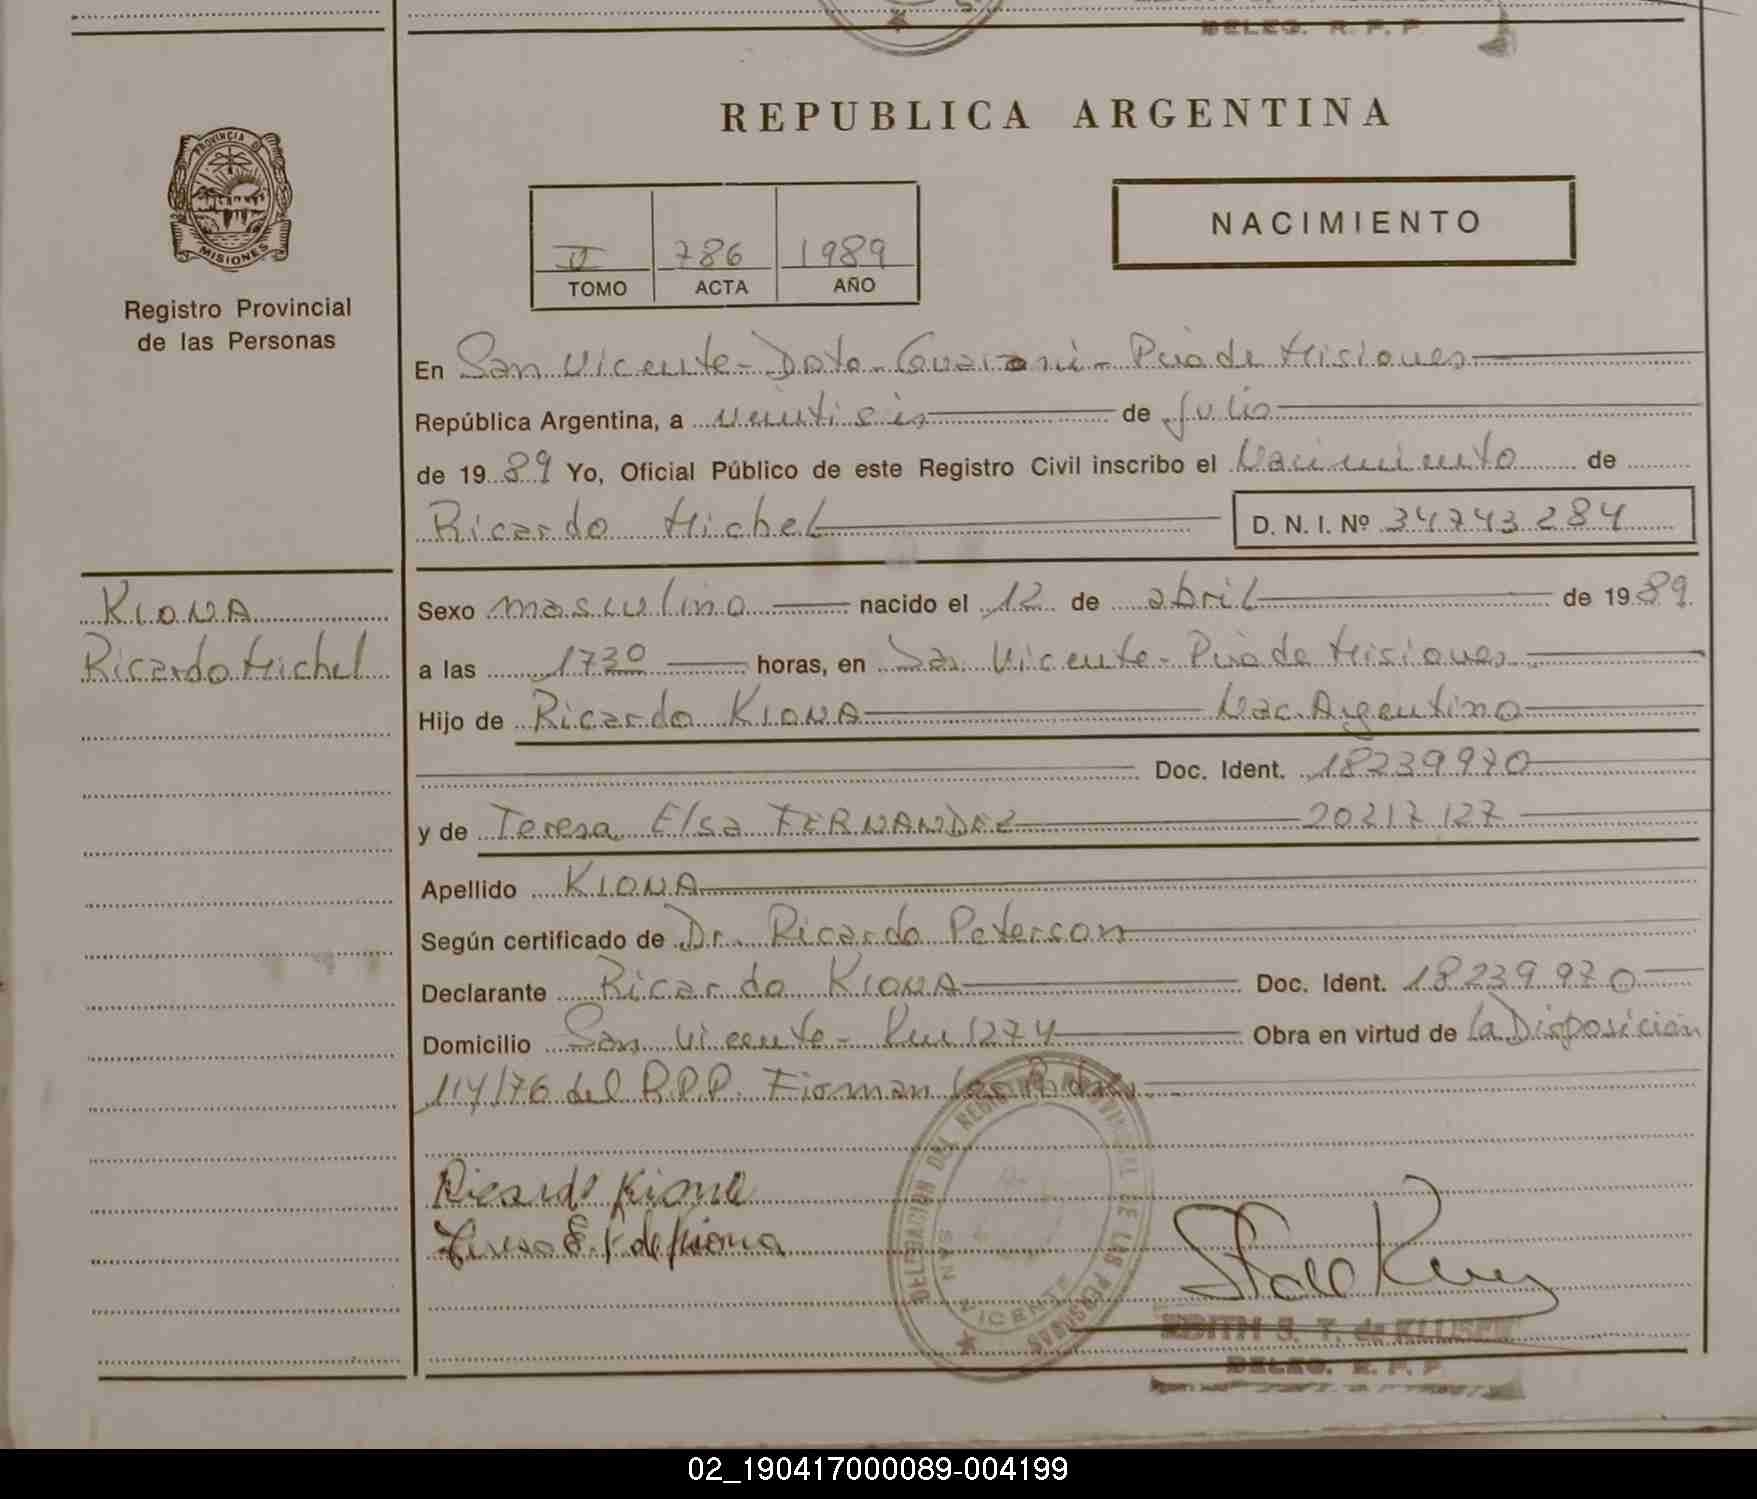 DELEG. R. P. P.
REPUBLICA ARGENTINA
PROVINCIA D
MISIONES
Registro Provincial
de las Personas
II 786 1989
TOMO ACTA AÑO
NACIMIENTO
En San Vicente - Dpto. Guaraní - Pcia de Misiones
República Argentina, a veintiseis de Julio
de 1989 Yo, Oficial Público de este Registro Civil inscribo el Nacimiento de
Ricardo Michel D. N. I. Nº 34743284
KIONA
Ricardo Michel
Sexo masculino nacido el 12 de abril de 1989
a las 1730 horas, en San Vicente - Pcia de Misiones
Hijo de Ricardo KIONA Nac. Argentino
Doc. Ident. 18239970
y de Teresa Elsa FERNANDEZ 20217127
Apellido KIONA
Según certificado de Dr. Ricardo Peterson
Declarante Ricardo KIONA Doc. Ident. 18239.970
Domicilio San Vicente - Km 1274 Obra en virtud de la Disposición
114/76 del R.P.P. Firman los Padres
Ricardo Kiona
Teresa E. F. de Kiona
DELEGACION DEL REGISTRO PROVINCIAL DE LAS PERSONAS
SAN VICENTE
EDITH S. T. de KLUSEN
DELEG. R. P. P.
02_190417000089-004199